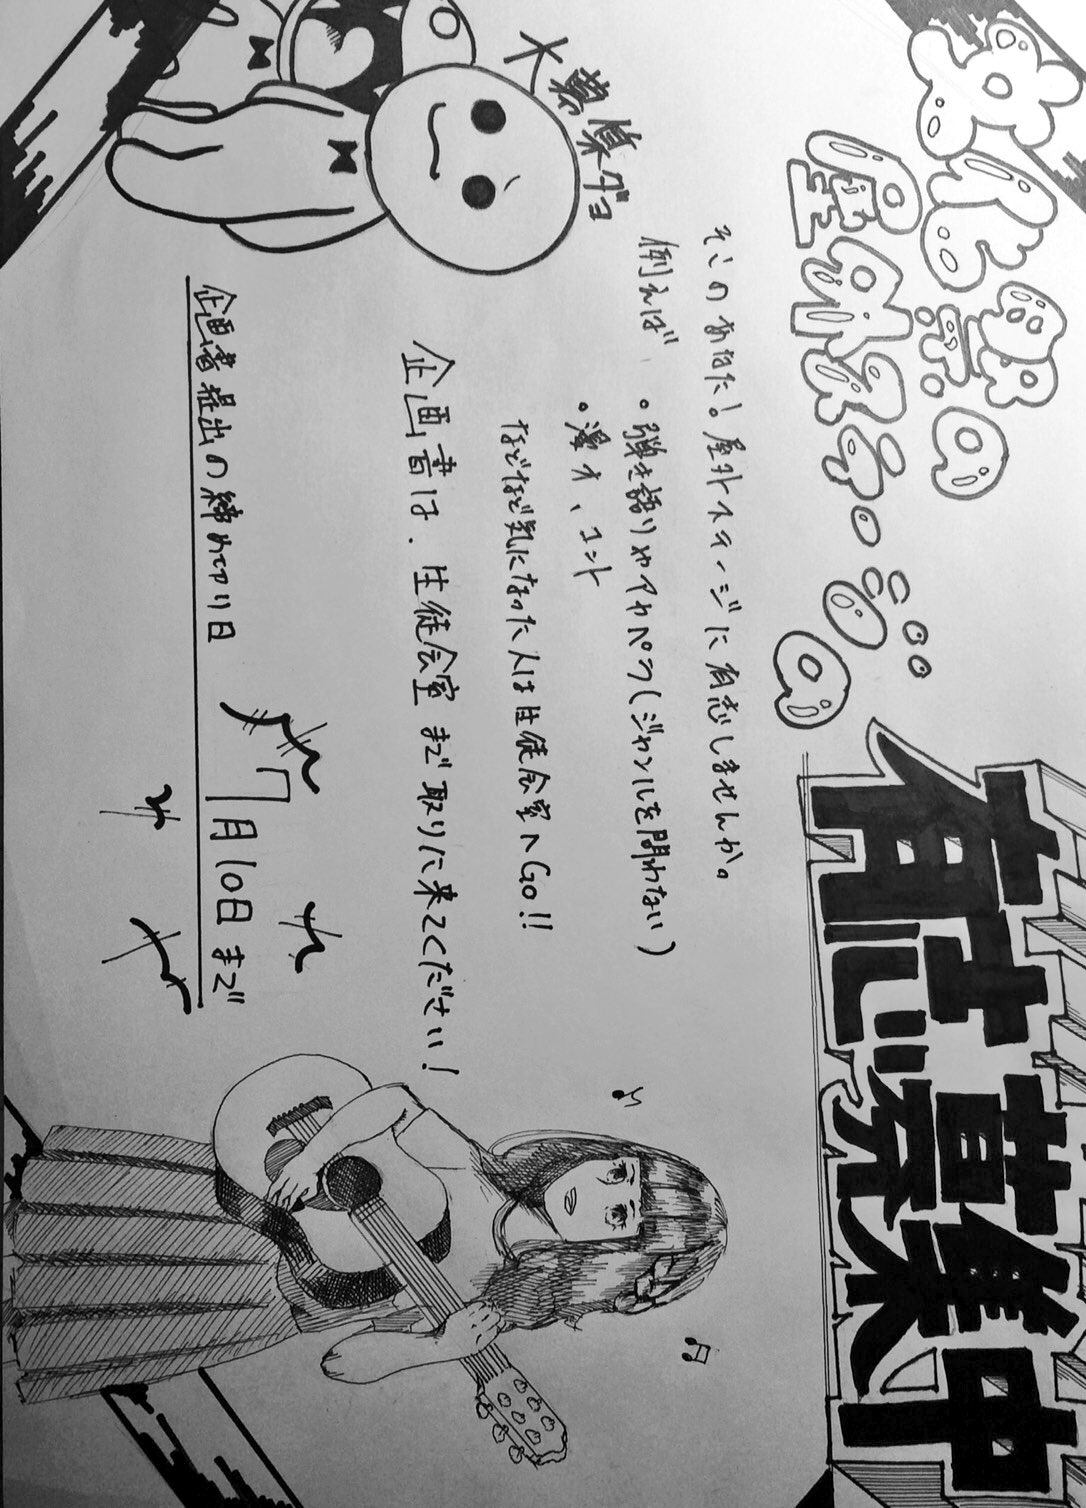 文化祭の
屋外ステージの
有志募集中
そこのあなた!屋外ステージに有志しませんか。
例えば
・弾き語りやアカペラ(ジャンルを問わない)
・漫才、コント
などなど気になった人は生徒会室へGO!!
企画書は、生徒会室まで取りに来てください!
企画書提出の締め切り日
7月10日まで